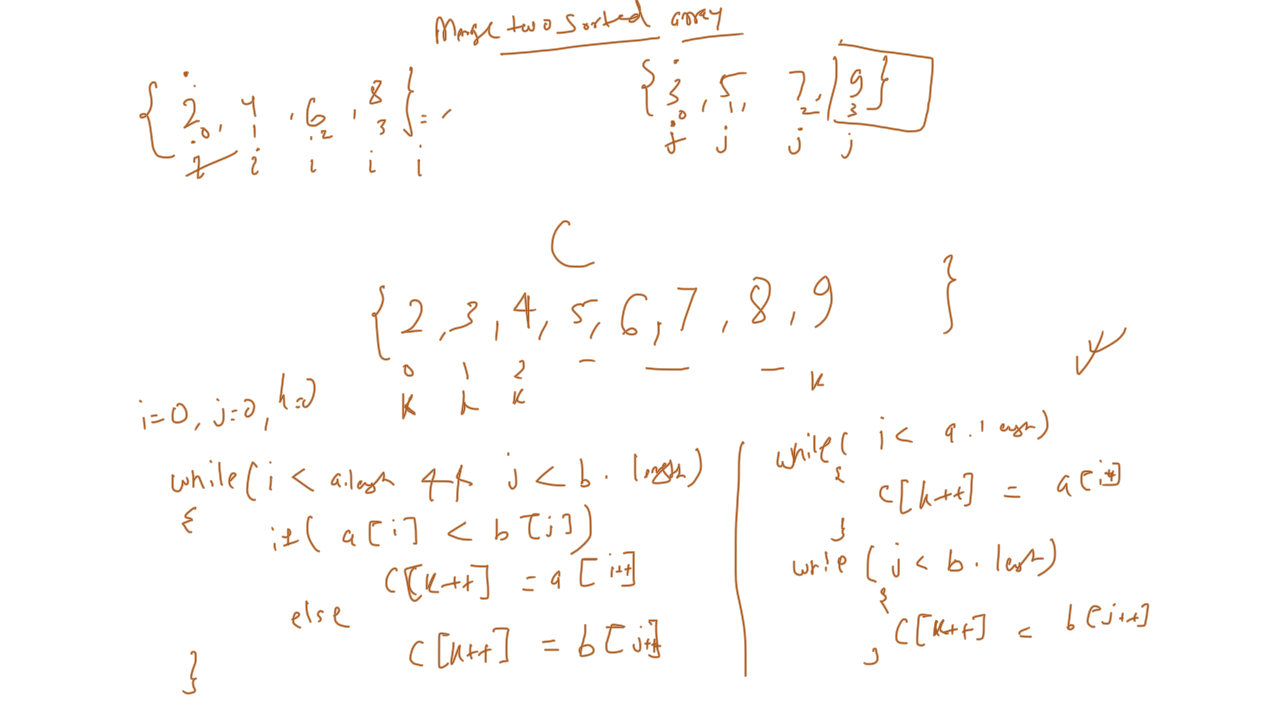 Merge two sorted array
{ 2, 4, 6, 8 } =
0 1 2 3
i i i i i
{ 3, 5, 7, 9 }
0 1 2 3
j j j j
C
{ 2, 3, 4, 5, 6, 7, 8, 9 }
0 1 2
K k K K
i=0, j=0, k=0
while( i < a.length && j < b.length)
{
if( a[i] < b[j])
C[K++] = a[i++]
else
C[K++] = b[j++]
}
while( i < a.length)
{
C[k++] = a[i++]
}
while ( j < b.length)
{
C[K++] = b[j++]
}